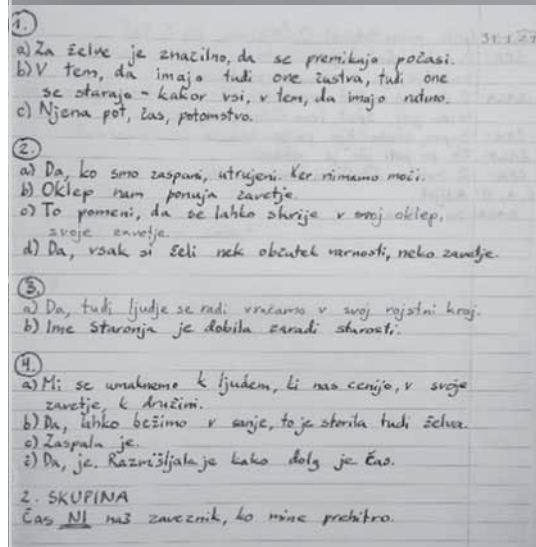 1.
31.1.27
a) Za želve je značilno, da se premikajo počasi.
b) V tem, da imajo tudi one čustva, tudi one
se starajo - kakor vsi, v tem, da imajo rutino.
c) Njena pot, čas, potomstvo.
2.
a) Da, ko smo zaspani, utrujeni. Ker nimamo moči.
b) Oklep nam ponuja zavetje.
c) To pomeni, da se lahko skrije v svoj oklep,
svoje zavetje.
d) Da, vsak si želi nek občutek varnosti, neko zavetje.
3.
a) Da, tudi ljudje se radi vračamo v svoj rojstni kraj.
b) Ime Staronja je dobila zaradi starosti.
4.
a) Mi se umaknemo k ljudem, ki nas cenijo, v svoje
zavetje, k družini.
b) Da, lahko bežimo v sanje, to je storila tudi želva.
c) Zaspala je.
č) Da, je. Razmišljala je kako dolg je čas.
2. SKUPINA
Čas NI naš zaveznik, ko mine prehitro.